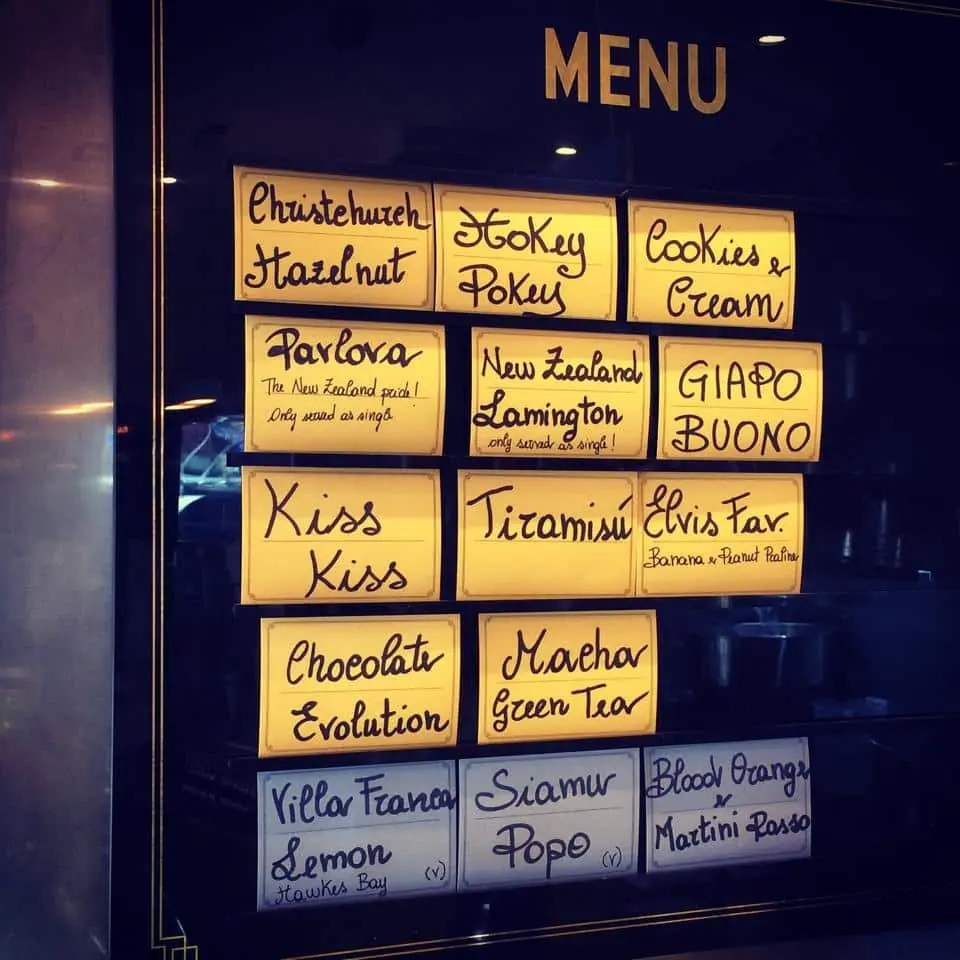 MENU
Christchurch
Hazelnut
Hokey
Pokey
Cookies &
Cream
Pavlova
The New Zealand pride!
Only served as single
New Zealand
Lamington
only served as single!
GIAPO
BUONO
Kiss
Kiss
Tiramisú
Elvis Fav.
Banana & Peanut Praline
Chocolate
Evolution
Macha
Green Tea
Villa Franca
Lemon
Hawkes Bay
(v)
Siamu
Popo
(v)
Blood Orange
&
Martini Rosso